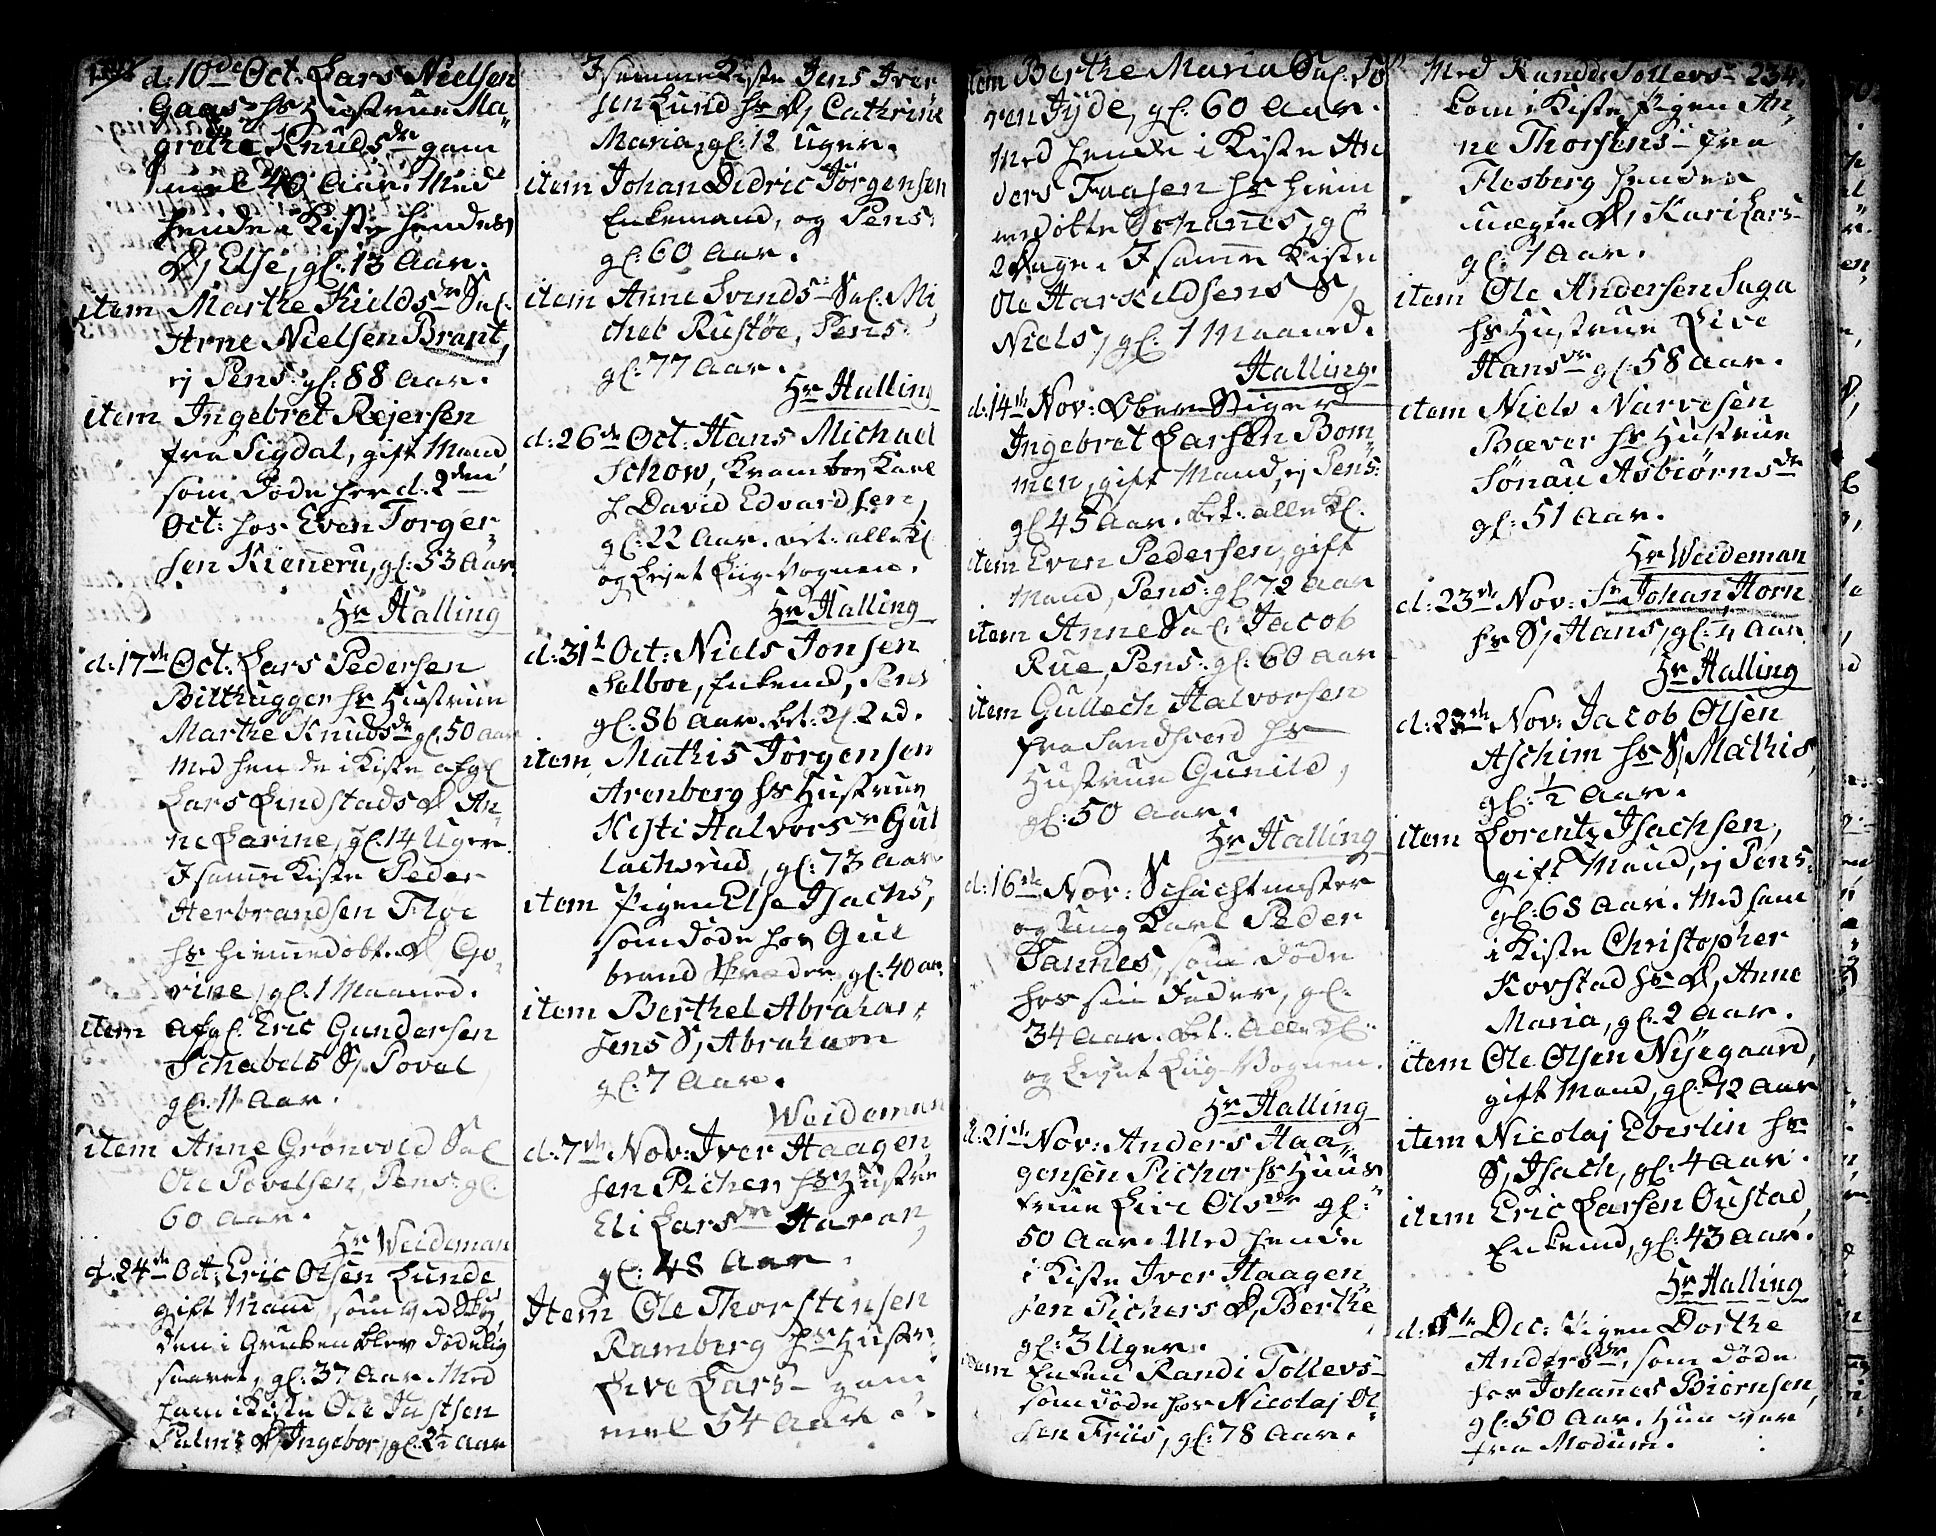 d: 10de Oct. Lars Nielsen
Gaas hs Hustrue Ma„
grethe Knudsdr gam
mel 40 Aar. Med
hende i Kiste hendes
D, Else, gl: 13 Aar.
item Marthe Kieldsdr Sal.
Arne Nielsen Brant,
ej Pens: gl: 88 Aar.
item Ingebret Rejersen
fra Sigdal, gift Mand
som døde her d. 2den
Oct: hos Even Torger„
sen Kieneru, gl: 53 Aar.
Hr Halling
d: 17de Oct: Lars Pedersen
Bilthugger hs Hustrue
Marthe Knudsdr gl. 50 Aar
Med hende i Kiste afgl
Lars Lindstads D An„
ne Larine, gl: 14 Uger.
I samme Kiste Peder
Herbrandsen Floe
hs hiemmedøbte D Go„
rine, gl. 1 Maaned.
item afgl. Eric Gundersen
Schabels S, Povel
gl: 11 Aar.
item Anne Grønvold Sal
Ole Povelsen, Pens: gl.
60 Aar.
Hr Weideman
d: 24de Oct: Eric Olsen Lunde
gift Mand, som ved
den i Gruben blev dødelig
saaret, gl: 37 Aar. Med
ham i Kiste Ole Justsen
Palms D, Ingebor, gl: 2½ Aar
I samme Kiste Jens Iver
sen Lund hs D, Cathrine
Maria, gl: 12 Uger.
item Johan Didric Jørgensen
Enkemand, og Pens:
gl: 60 Aar.
item Anne Svends- Sal. Mi
chel Rustøe, Pens:
gl: 77 Aar.
Hr Halling
d: 26de Oct: Hans Michael
Schow, Krambod Karl
h David Edvardsen,
gl: 22 Aar. bet: alle Kl
og Lejet Liig-Vognen.
Hr Halling
d: 31t Oct: Niels Jonsen
Solboe, Enkemd, Pens
gl: 86 Aar. bet: 2 2 d.
item Mathis Jørgensen
Arenberg hs Hustrue
Kisti Halvorsdr Gul
lachsrud, gl: 73 Aar
item Pigen Else Isachs,
som døde hos Gul
brand gl: 40 Aar.
item Berthel Abraham„
sens S, Abraham
gl: 7 Aar.
Weideman
d: 7de Nov: Iver Haagen
sen Picher, hs Hustrue
Eli Larsdr Haran,
gl: 48 Aar.
Item Ole Thorstensen
Ramberg hs Hustr:
Live Lars- gam
mel 54 Aar.
item Berthe Maria Sal. Sø
ren Jyde, gl: 60 Aar.
Med hende i Kiste An
ders Faasen hs hiem
medøbte Johannes, gl
2 Dage. I samme Kiste
Ole Harkildsens S,
Niels, gl. 1 Maaned.
Halling.
d: 14de Nov: Ober-Stiger
Ingebret Larsen Bom„
men, gift Mand, ej Pens:
gl 45 Aar. bet: alle Kl.
item Even Pedersen, gift
Mand, Pens: gl 72 Aar
item Anne Sal. Jacob
Rue, Pens: gl: 60 Aar
item Gullech Halvorsen
fra Sandsverd hs
Hustrue Gunild,
gl: 50 Aar.
Hr Halling
d: 16de Nov: Schichtmester
og Ung Karl Peder
Jannes, som døde
hos sin Fader, gl.
34 Aar. bet: alle Kl:
og Lejet Liig-Vognen.
Hr Halling
d: 21de Nov: Anders Haa„
gensen Picher hs Huus
true Live Olsdr gl:
50 Aar. Med hende
i Kiste Iver Haagen„
sen Pichers D, Berthe
gl: 3 Uger.
item Enken Randi Tollevs-
som døde hos Nicolaj Ol
sen Friis, gl: 78 Aar.
Med Randi Tollevs- 234.
kom i Kiste Pigen An„
ne Thorsens- fra
Flesberg hendes
uægte D, Kari Lars-
gl: 7 Aar.
item Ole Andersen Saga
hs Hustrue Live
Hansdr gl: 58 Aar.
item Niels Narvesen
Bæver hs Hustrue
Sønau Asbiørnsdr
gl: 51 Aar.
Hr Weideman
d: 23de Nov: Sr Johan Horn
hs S, Hans, gl: 4 Aar
Hr Halling
d: 23de Nov: Jacob Olsen
Aschim hs S, Mathis,
gl: ½ Aar.
item Lorentz Isachsen,
gift Mand, ej Pens:
gl: 68 Aar. Med ham
i Kiste Christopher
Korstad hs D, Anne
Maria, gl. 2 Aar.
item Ole Olsen Nyegaard,
gift Mand, gl: 72 Aar
item Nicolaj Eberlin hs
S, Isach, gl: 4 Aar.
item Eric Larsen Oustad,
Enkemd, gl: 43 Aar.
Hr Halling
d: 5te Dec: Pigen Dorthe
Andersdr, som døde
hos Johannes Biørnsen,
gl: 50 Aar. Hun var
fra Modum.